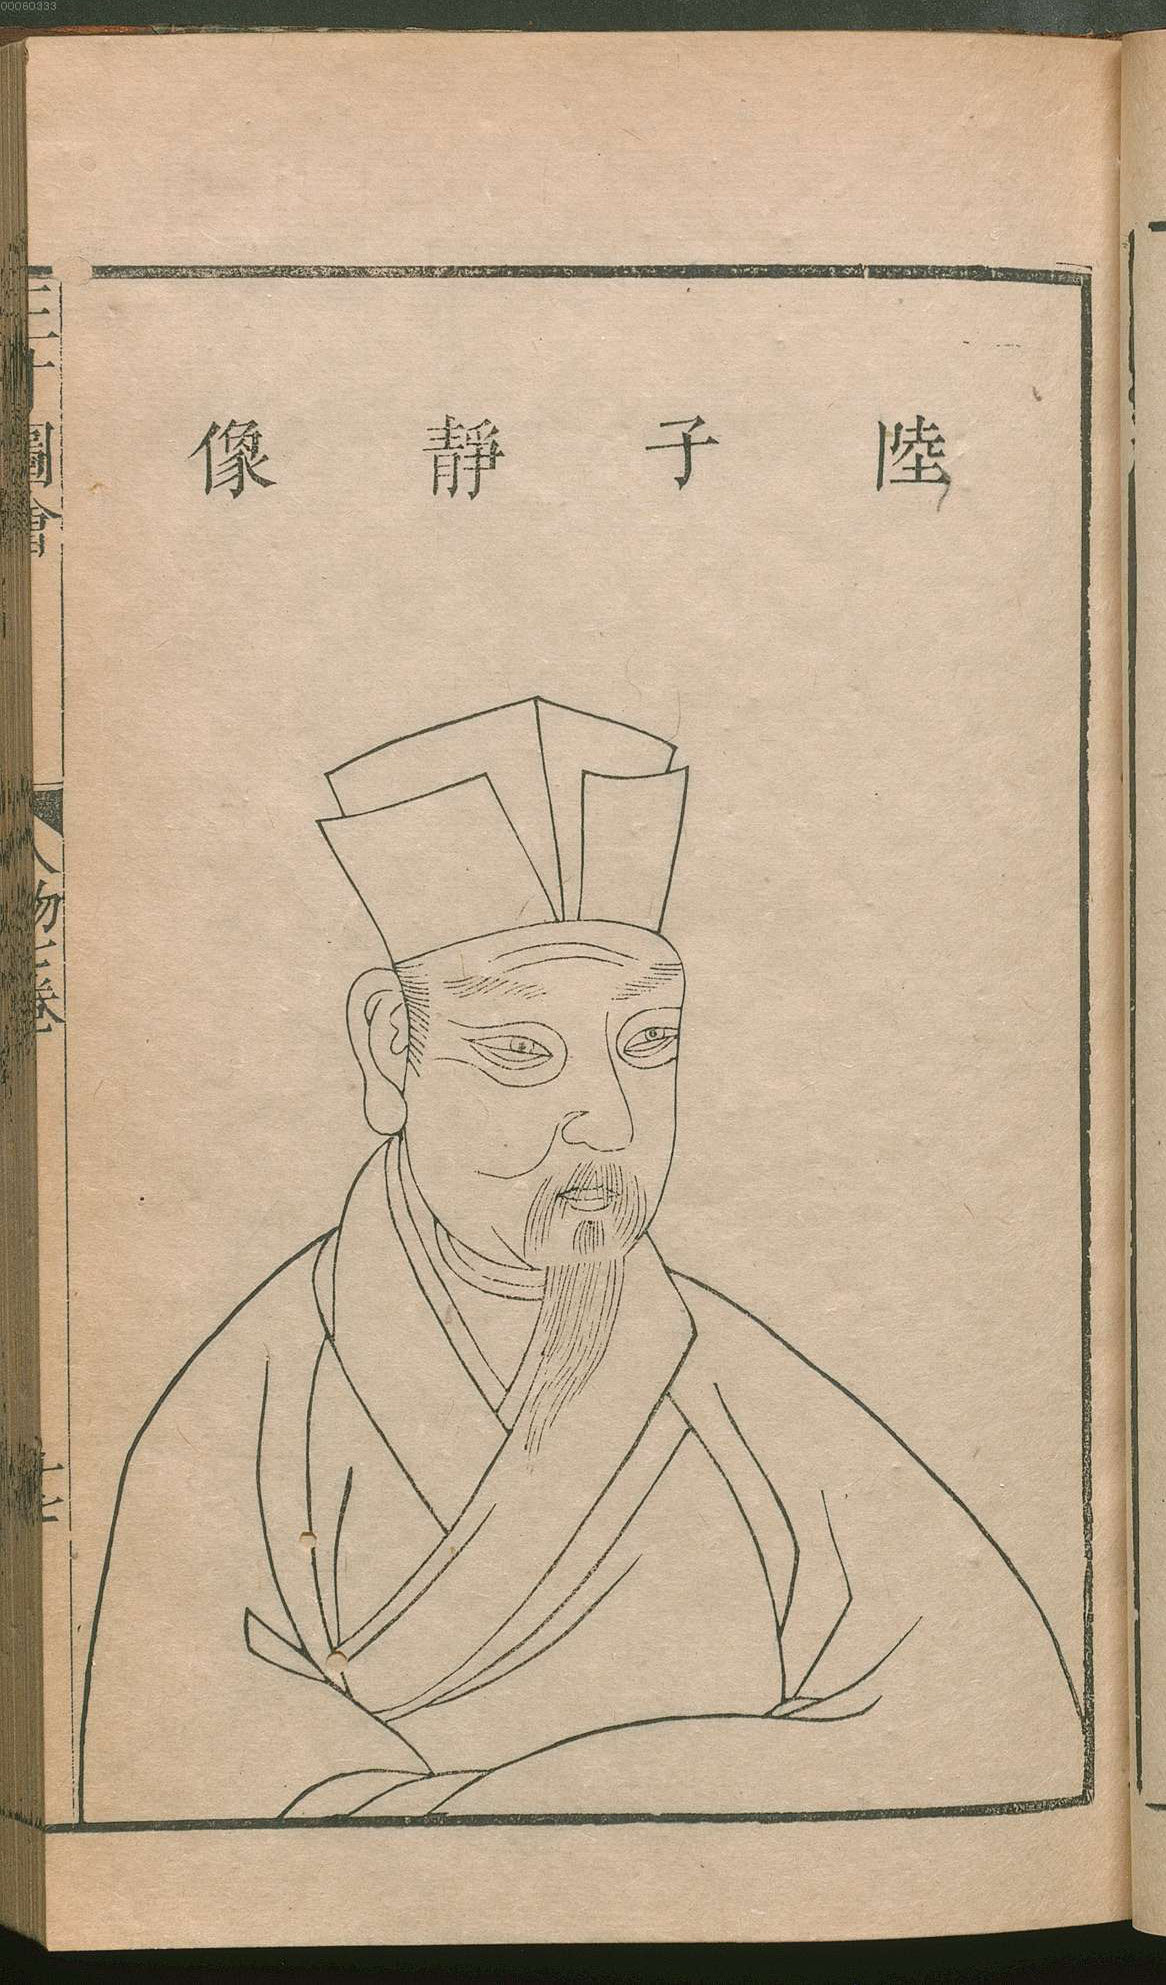 00060333
陸子靜像
三才圖會
人物七卷
十七